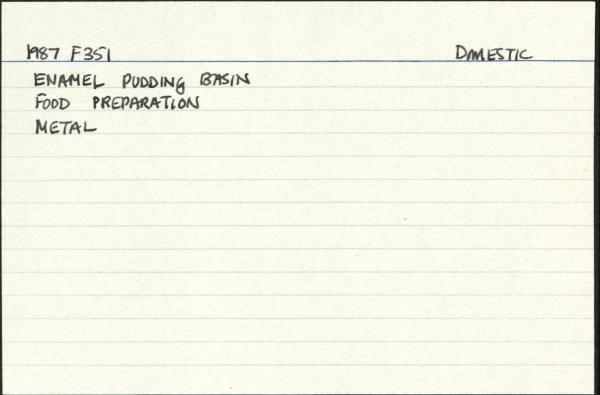 1987 F351 DOMESTIC
ENAMEL PUDDING BASIN
FOOD PREPARATION
METAL